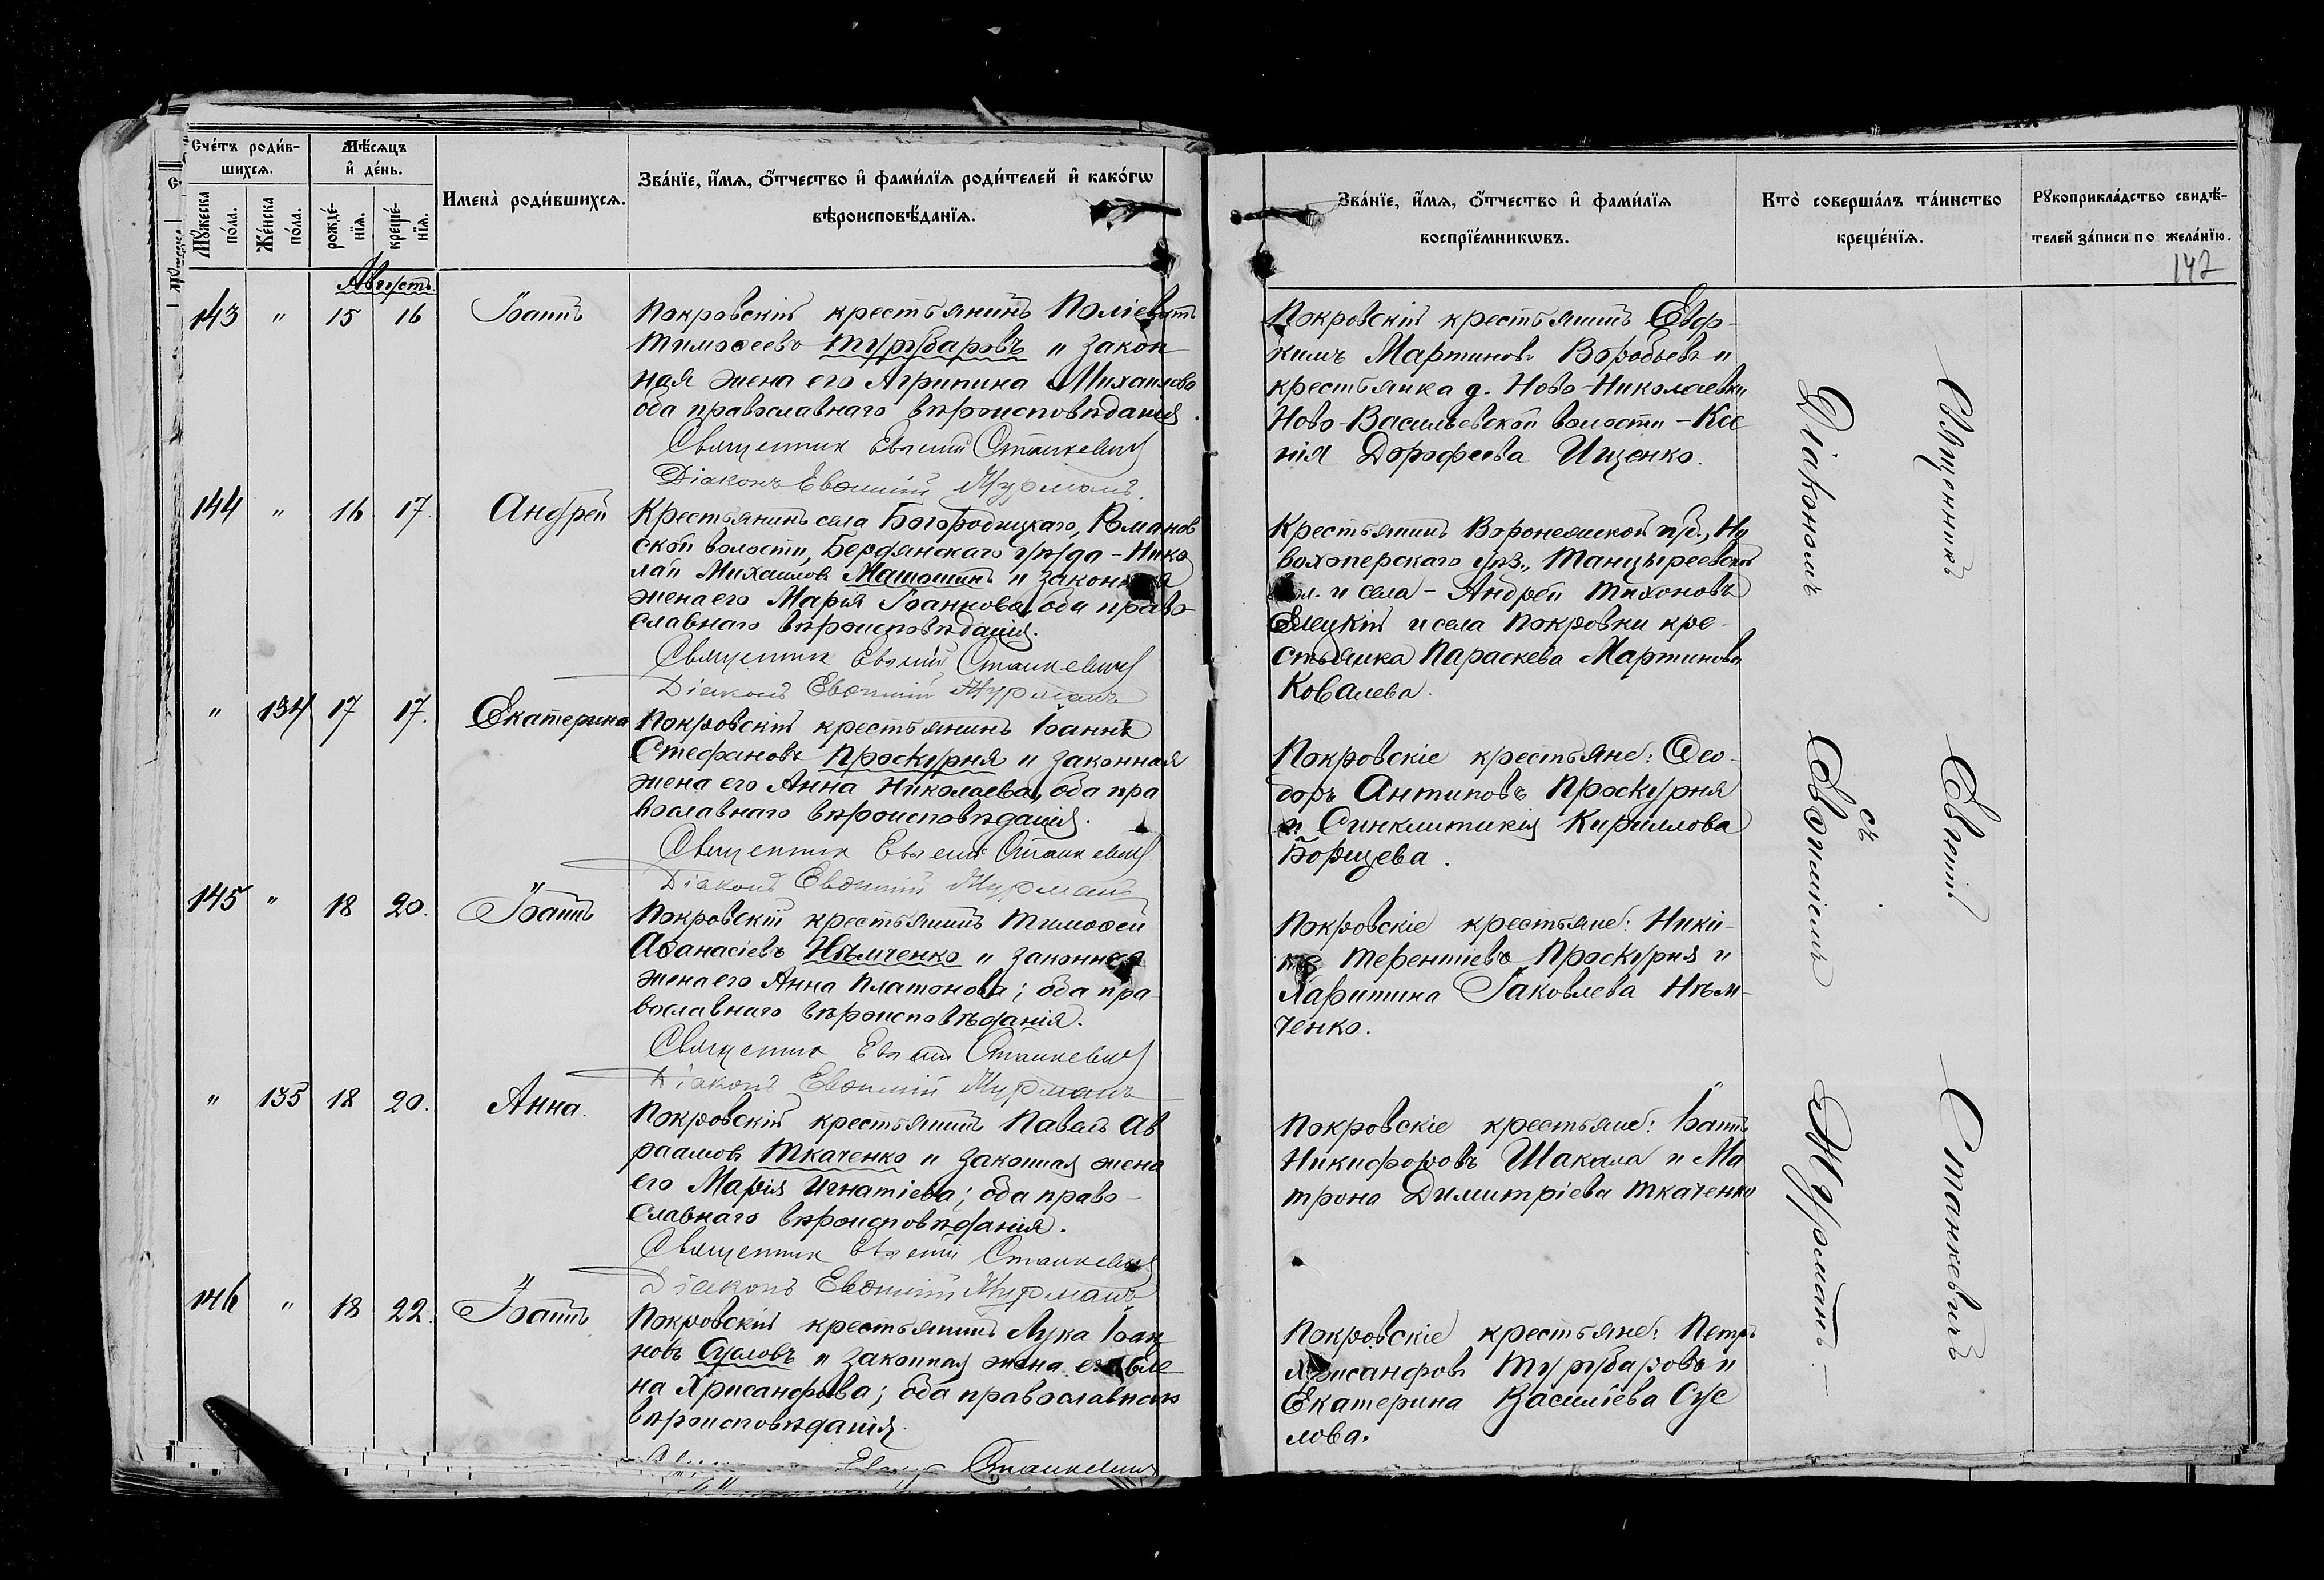 Сче́тъ роди́в-
шихся.
Мѣ́сяцъ
и҆ де́нь.
Мꙋ́жеска
по́ла.
Же́нска
по́ла.
рожде́-
нїя.
креще́-
нїя.
Имена̀ роди́вшихся.
Зва́нїе, и҆́мя, ѻ҆́тчество и҆ фами́лїя роди́телей и҆ како́гѡ
вѣроисповѣ́данїя.
Августъ.
143 " 15 16 Іоаннъ
Покровскій крестьянинъ Поліевктъ
Тимоѳеевъ Туруваровъ и закон
ная жена его Агрипина Михаилова
оба православнаго вѣроисповѣданія.
Священник Евѳимій Станкевичъ
Діаконъ Евѳимій Журманъ.
144 " 16 17. Андрей
Крестьянинъ села Богородицкаго, Романов
ской волости, Бердянскаго уѣзда - Нико
лай Михаиловъ Машошинъ и законная
жена его Марѳа Іоаннова, оба право-
славнаго вѣроисповѣданія.
Священник Евѳимій Станкевичъ
Діаконъ Евѳимій Журманъ
" 134 17 17. Екатерина
Покровскій крестьянинъ Іоаннъ
Стефановъ Проскурня и законная
жена его Анна Николаева, оба пра
вославнаго вѣроисповѣданія.
Священник Евѳимій Станкевичъ
Діаконъ Евѳимій Журманъ
145 " 18 20. Іоаннъ
Покровскій крестьянинъ Тимоѳей
Аѳанасіевъ Нѣмченко и законная
жена его Анна Платонова; оба пра-
вославнаго вѣроисповѣданія.
Священник Евѳимій Станкевичъ
Діаконъ Евѳимій Журманъ
" 135 18 20. Анна.
Покровскій крестьянинъ Павелъ Ав
раамовъ Ткаченко и законная жена
его Марія Игнатіева; оба право-
славнаго вѣроисповѣданія.
Священник Евѳимій Станкевичъ
Діаконъ Евѳимій Журманъ
146 " 18 22. Іоаннъ
Покровскій крестьянинъ Лука Іоан
новъ Сусловъ и законная жена его Еле
на Хрисанфова; оба православнаго
вѣроисповѣданія.
Станкевичъ
Зва́нїе, и҆́мя, ѻ҆́тчество и҆ фами́лїя
воспрїе́мникѡвъ.
Кто̀ соверша́лъ та́инство
креще́нїя.
Рꙋкоприкла́дство свидѣ́-
телей за́писи по жела́нїю.
147
Покровскій крестьянинъ Евѳ-
кимъ Мартиновъ Воробьевъ и
крестьянка д. Ново-Николаевки
Ново-Васильевской волости - Ксе
нія Дорофеева Ищенко.
Крестьянинъ Воронежской губ., Но
вохоперскаго уѣз., Танцыреевской
вол. и села - Андрей Тихоновъ
Елецкій и села Покровки кре-
стьянка Параскева Мартинова
Ковалева.
Покровскіе крестьяне: Ѳео-
доръ Антиповъ Проскурня
и Синклитикія Кириллова
Борщева.
Покровскіе крестьяне: Ники-
та Терентіевъ Проскурня и
Харитина Іаковлева Нѣм-
ченко.
Покровскіе крестьяне: Іоаннъ
Никифоровъ Шакала и Ма
трона Димитріева Ткаченко
Покровскіе крестьяне: Петръ
Хрисанфовъ Туруваровъ и
Екатерина Василіева Сус
лова.
Священникъ Евѳимій Станкевичъ
съ
Діакономъ Евѳиміемъ Журманъ.-